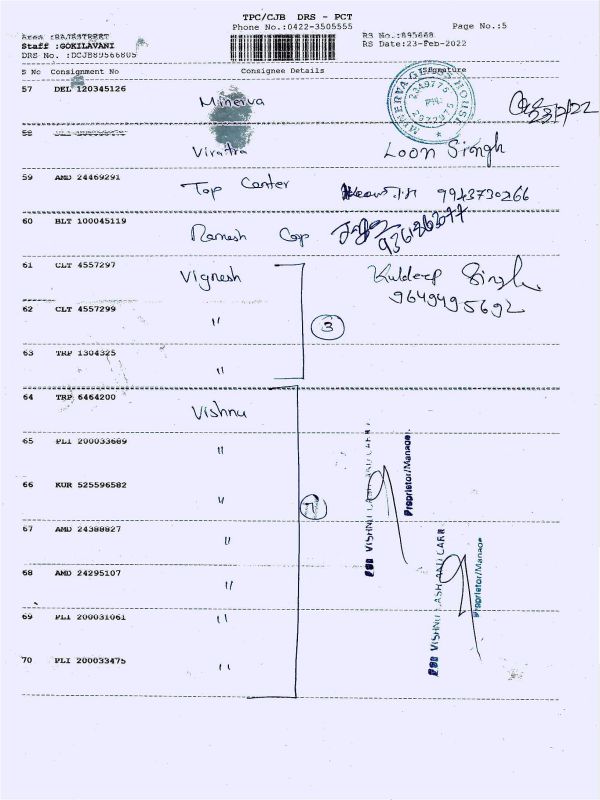 TPC/CJB DRS - PCT
Phone No.:0422-3505555
Page No.:5
Area :RAJASTREET
Staff :GOKILAVANI
DRS No. :DCJB89566805
RS No.:895668
RS Date:23-Feb-2022
S No Consignment No Consignee Details Signature
57 DEL 120345126 Minerva
MINERVA GLASS HOUSE
58 Viratra Loon Singh
59 AMD 24469291 Top Center 9943730266
60 BLT 100045119 Ramesh Cop
61 CLT 4557297 Vignesh Kuldeep Singh
9649495692
62 CLT 4557299 "
3
63 TRP 1304325 "
64 TRP 6464200 Vishnu
65 PLI 200033689 "
66 KUR 525596582 "
7
67 AMD 24388827 "
68 AMD 24295107 "
69 PLI 200031061 "
70 PLI 200033475 "
VISHNU CASH AND CARR
Proprietor/Manager
VISHNU CASH AND CARR
Proprietor/Manage